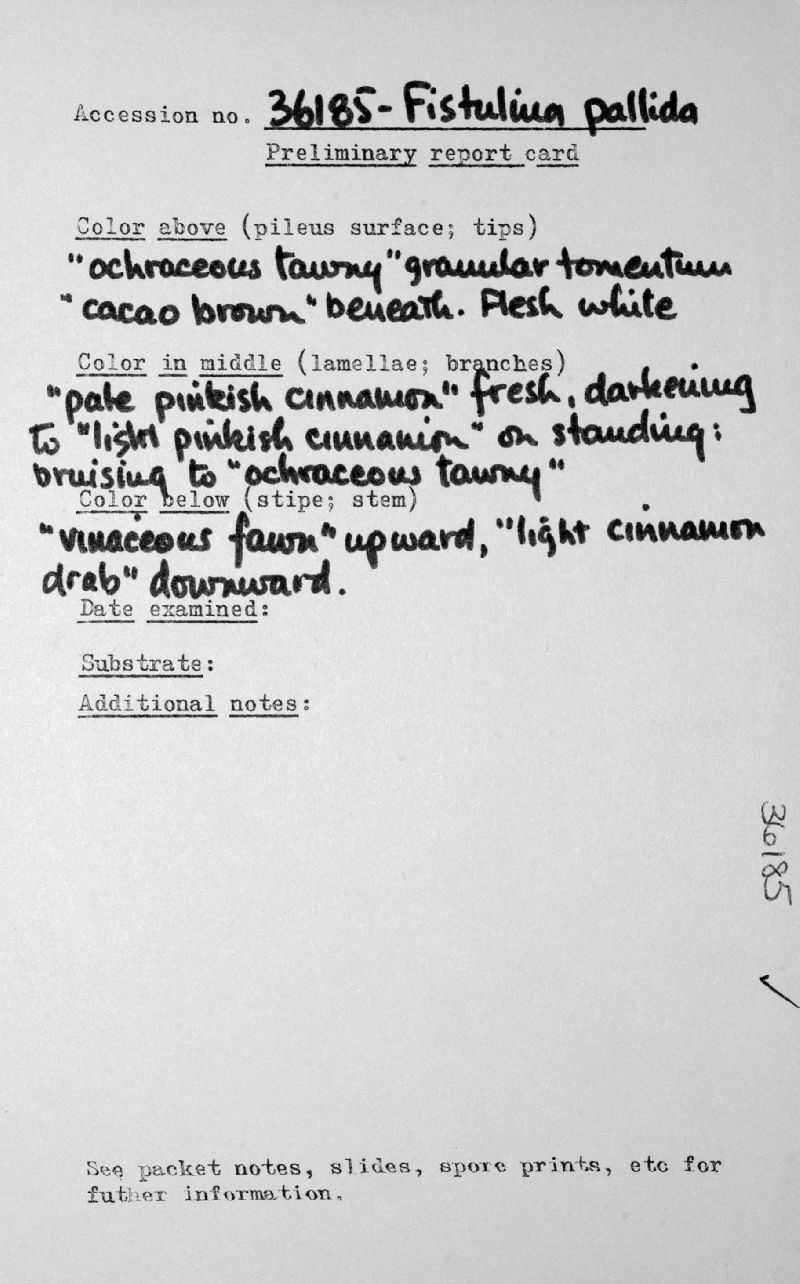 Accession no. 36185 - Fistulina pallida
Preliminary report card
Color above (pileus surface; tips)
"ochraceous tawny" granular tomentum
"cacao brown" beneath. Flesh white
Color in middle (lamellae; branches)
"pale pinkish cinnamon" fresh, darkening
to "light pinkish cinnamon" on standing;
bruising to "ochraceous tawny"
Color below (stipe; stem)
"vinaceous fawn" upward, "light cinnamon
drab" downward.
Date examined:
Substrate:
Additional notes:
36185
See packet notes, slides, spore prints, etc for
futher information.